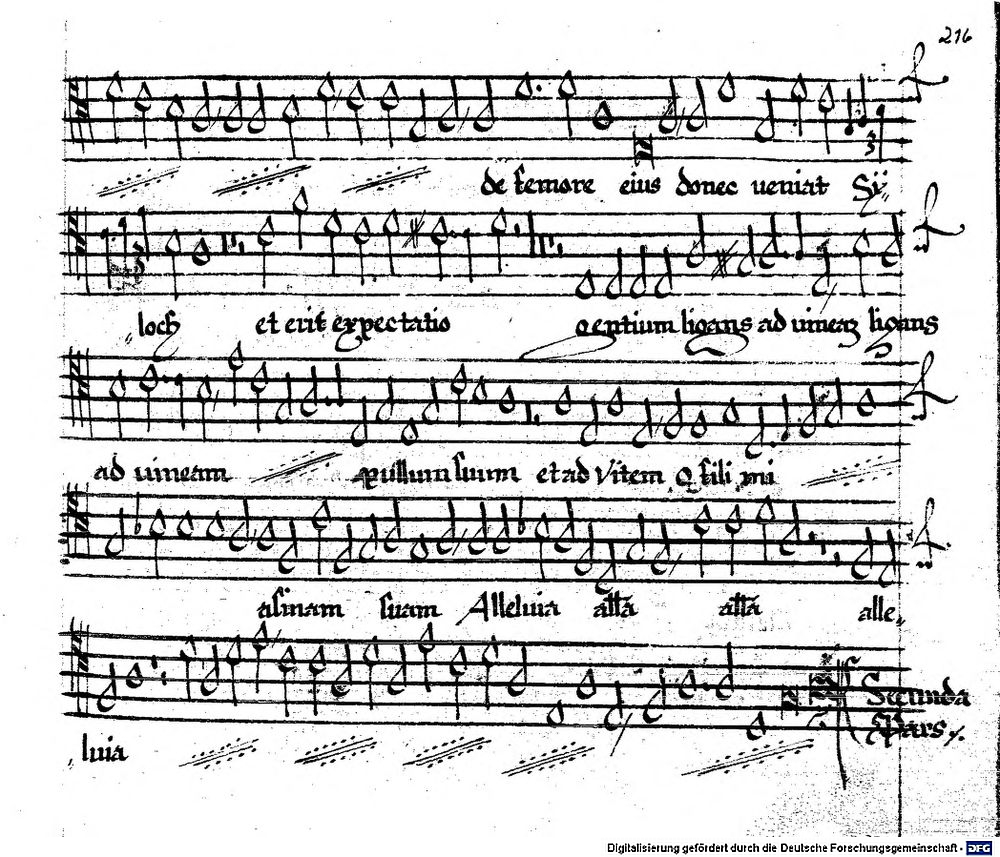 216
de femore eius donec ueniat Sÿ„
„loch et erit expectatio gentium ligans ad uineaʒ ligans
ad uineam pullum suum et ad Vitem O fili mi
asinam suam Alleluia alla alla alle„
„luia
Secunda
Pars ٪
Digitalisierung gefördert durch die Deutsche Forschungsgemeinschaft - DFG